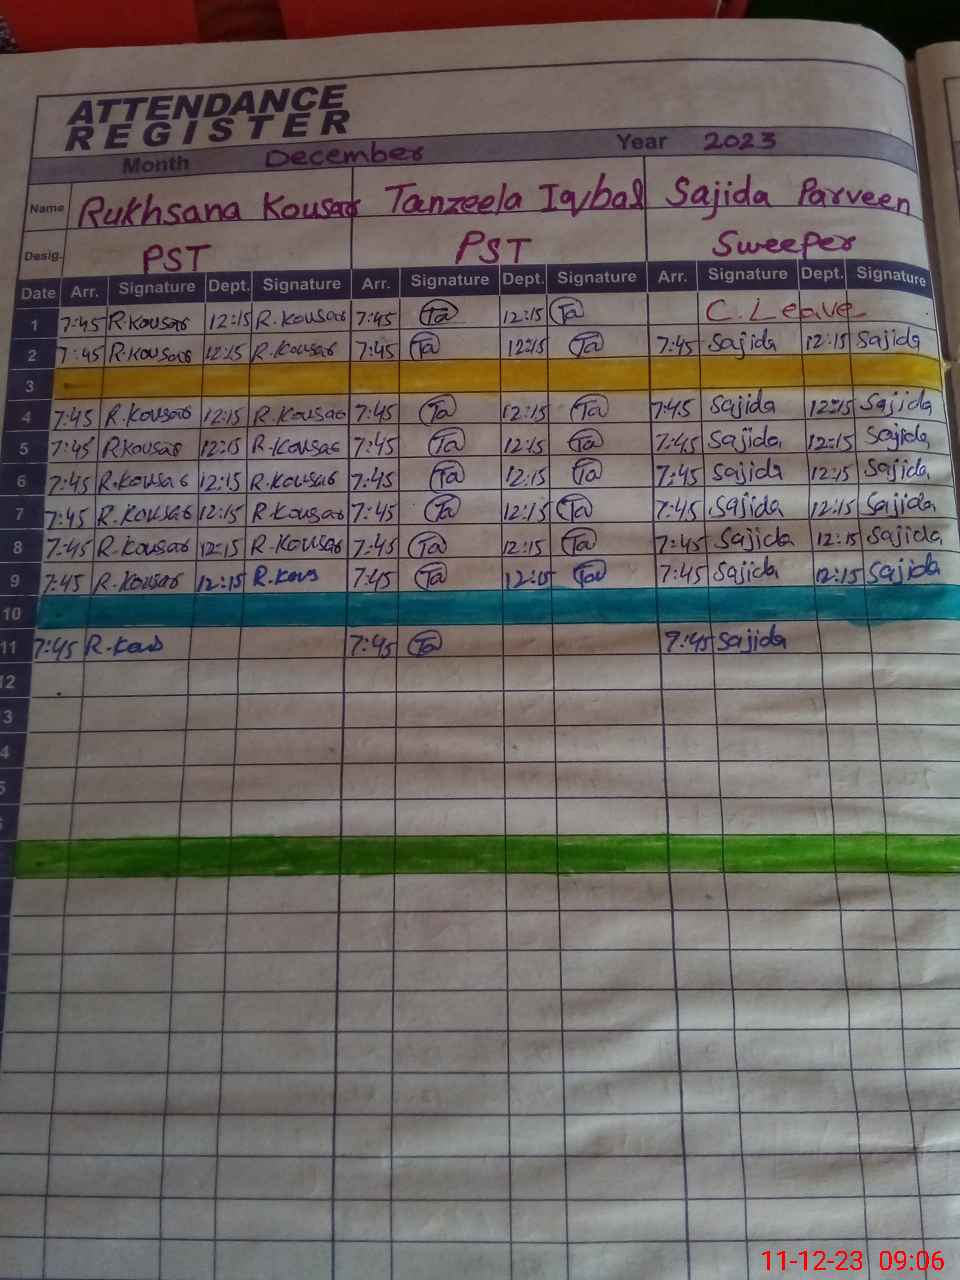 ATTENDANCE
REGISTER
Month December Year 2023
Name Rukhsana Kousar Tanzeela Iqbal Sajida Parveen
Desig. PST PST Sweeper
Date Arr. Signature Dept. Signature Arr. Signature Dept. Signature Arr. Signature Dept. Signature
1 7:45 R.Kousar 12:15 R.Kousar 7:45 Ta 12:15 Ta C.Leave
2 7:45 R.Kousar 12:15 R.Kousar 7:45 Ta 12:15 Ta 7:45 Sajida 12:15 Sajida
3
4 7:45 R.Kousar 12:15 R.Kousar 7:45 Ta 12:15 Ta 7:45 Sajida 12:15 Sajida
5 7:45 R.Kousar 12:15 R.Kousar 7:45 Ta 12:15 Ta 7:45 Sajida 12:15 Sajida
6 7:45 R.Kousar 12:15 R.Kousar 7:45 Ta 12:15 Ta 7:45 Sajida 12:15 Sajida
7 7:45 R.Kousar 12:15 R.Kousar 7:45 Ta 12:15 Ta 7:45 Sajida 12:15 Sajida
8 7:45 R.Kousar 12:15 R.Kousar 7:45 Ta 12:15 Ta 7:45 Sajida 12:15 Sajida
9 7:45 R.Kousar 12:15 R.Kous 7:45 Ta 12:15 Ta 7:45 Sajida 12:15 Sajida
10
11 7:45 R.Kous 7:45 Ta 7:45 Sajida
12
3
4
5
11-12-23 09:06